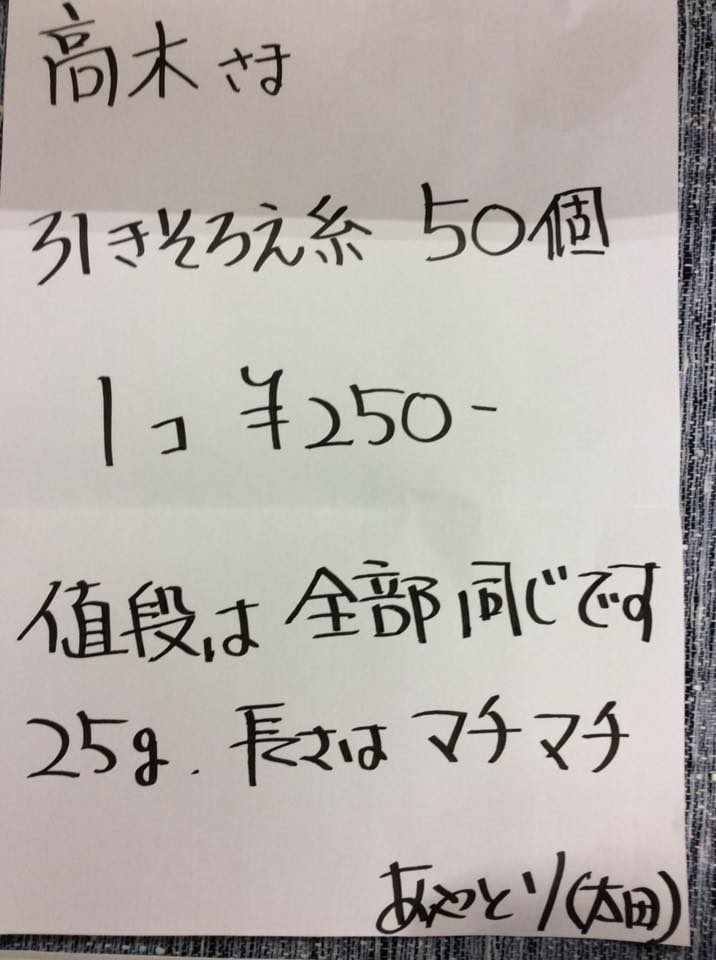 高木さま
引きそろえ糸 50個
1コ ¥250-
値段は全部同じです
25g. 長さはマチマチ
あやとり(太田)